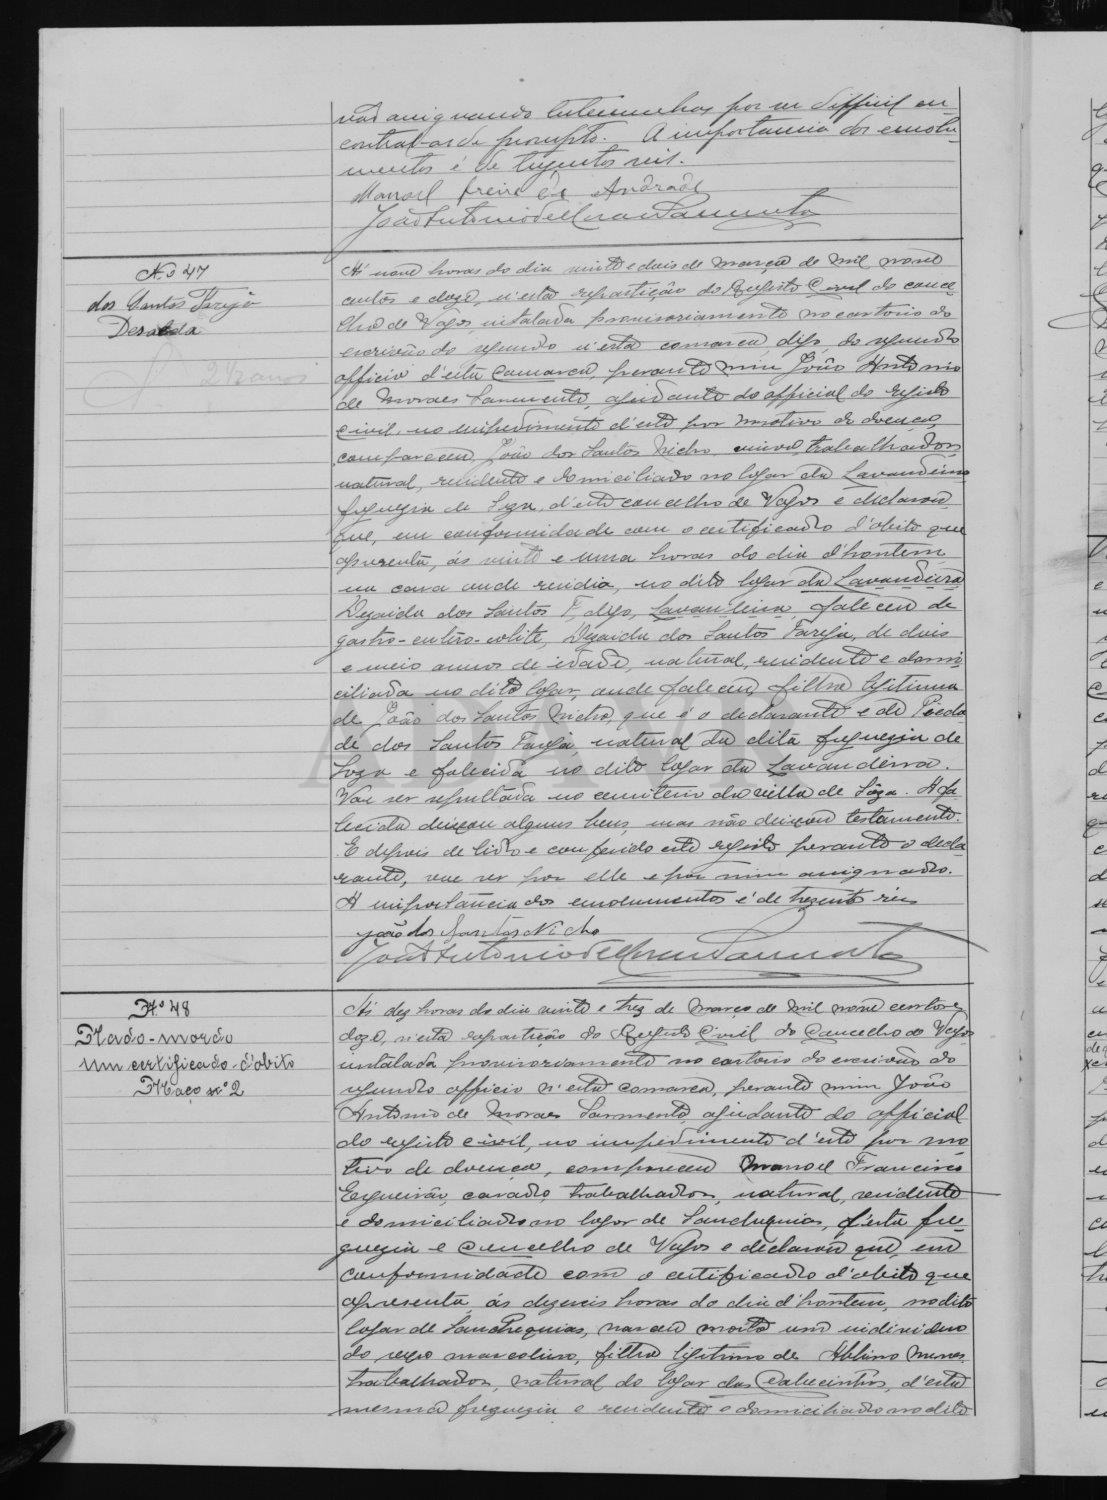 não assignando testemunhas por ser difficil en-
contral-as de prompto. A importancia dos emolu-
mentos é de trezentos reis.
Manoel Freire de Andrade
João Antonio de Moraes Sarmento
Nº 47
dos Santos Farejo
2 ½ annos
Ás nove horas do dia vinte e dois de março de mil nove
centos e doze, n'esta repartição do Registo Civil do conce-
lho de Vagos, installada provisoriamente no cartorio do
escrivão do segundo n'esta comarca, digo, do segundo
officio d'esta comarca, perante mim João Antonio
de Moraes Sarmento, ajudante do official do registo
civil, no impedimento d'este por motivo de doença,
compareceu João dos Santos Nicho, viuvo, trabalhador,
natural, residente e domiciliado no logar da Lavandeira
freguezia de Soza, d'este concelho de Vagos e declarou
que, em conformidade com o certificado d'obito que
apresenta, ás vinte e uma horas do dia d'hontem
na casa onde residia, no dito logar da Lavandeira
dos Santos F, digo, Lavandeira, faleceu de
gastro-entero-colite, dos Santos Fareja, de dois
e meio annos de idade, natural, residente e domi-
ciliada no dito logar, onde faleceu, filha legitima
de João dos Santos Nicho, que é o declarante e de Pieda-
de dos Santos Fareja, natural da dita freguezia de
Soza e falecida no dito logar da Lavandeira.
Vae ser sepultada no cemiterio da villa de Sôza. A fa-
lecida deixou alguns bens, mas não deixou testamento.
E depois de lido e conferido este registo perante o decla-
rante, vae ser por elle e por mim assignado.
A importancia dos emolumentos é de trezentos réis
joão dos Santos Nicho
João Antonio de Moraes Sarmento
Nº 48
Nado-morto
Um certificado d'obito
Maço nº 2
Ás dez horas do dia vinte e trez de março de mil nove centos e
doze, n'esta repartição do Registo Civil do Concelho de Vagos
installada provisoriamente no cartorio do escrivão do
segundo officio n'esta comarca, perante mim João
Antonio de Moraes Sarmento, ajudante do official
do registo civil, no impedimento d'este por mo-
tivo de doença, compareceu Manoel Francisco
Esgueirão, casado, trabalhador, natural, residente
e domiciliado no logar de Sanchequias, d'esta fre-
guezia e concelho de Vagos e declarou que, em
conformidade com o certificado d'obito que
apresenta, ás dezeseis horas do dia d'hontem, no dito
logar de Sanchequias, nasceu morto um individuo
do sexo masculino, filho legitimo de Albino Neves,
trabalhador, natural do logar das d'esta
mesma freguezia e residente e domiciliado no dito